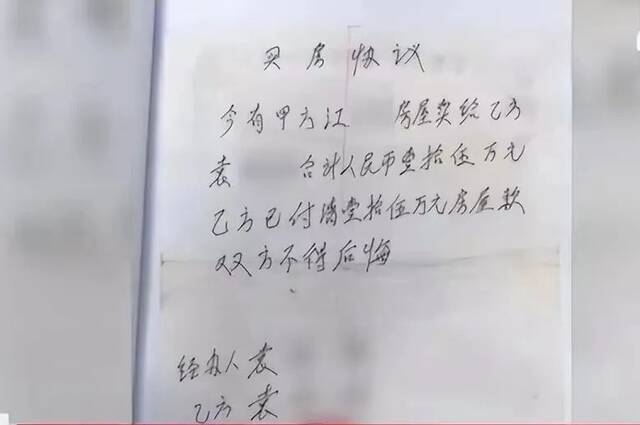 买房协议
今有甲方江 房屋卖给乙方
袁 合计人民币壹拾伍万元
乙方已付清壹拾伍万元房屋款
双方不得后悔
经办人袁
乙方袁